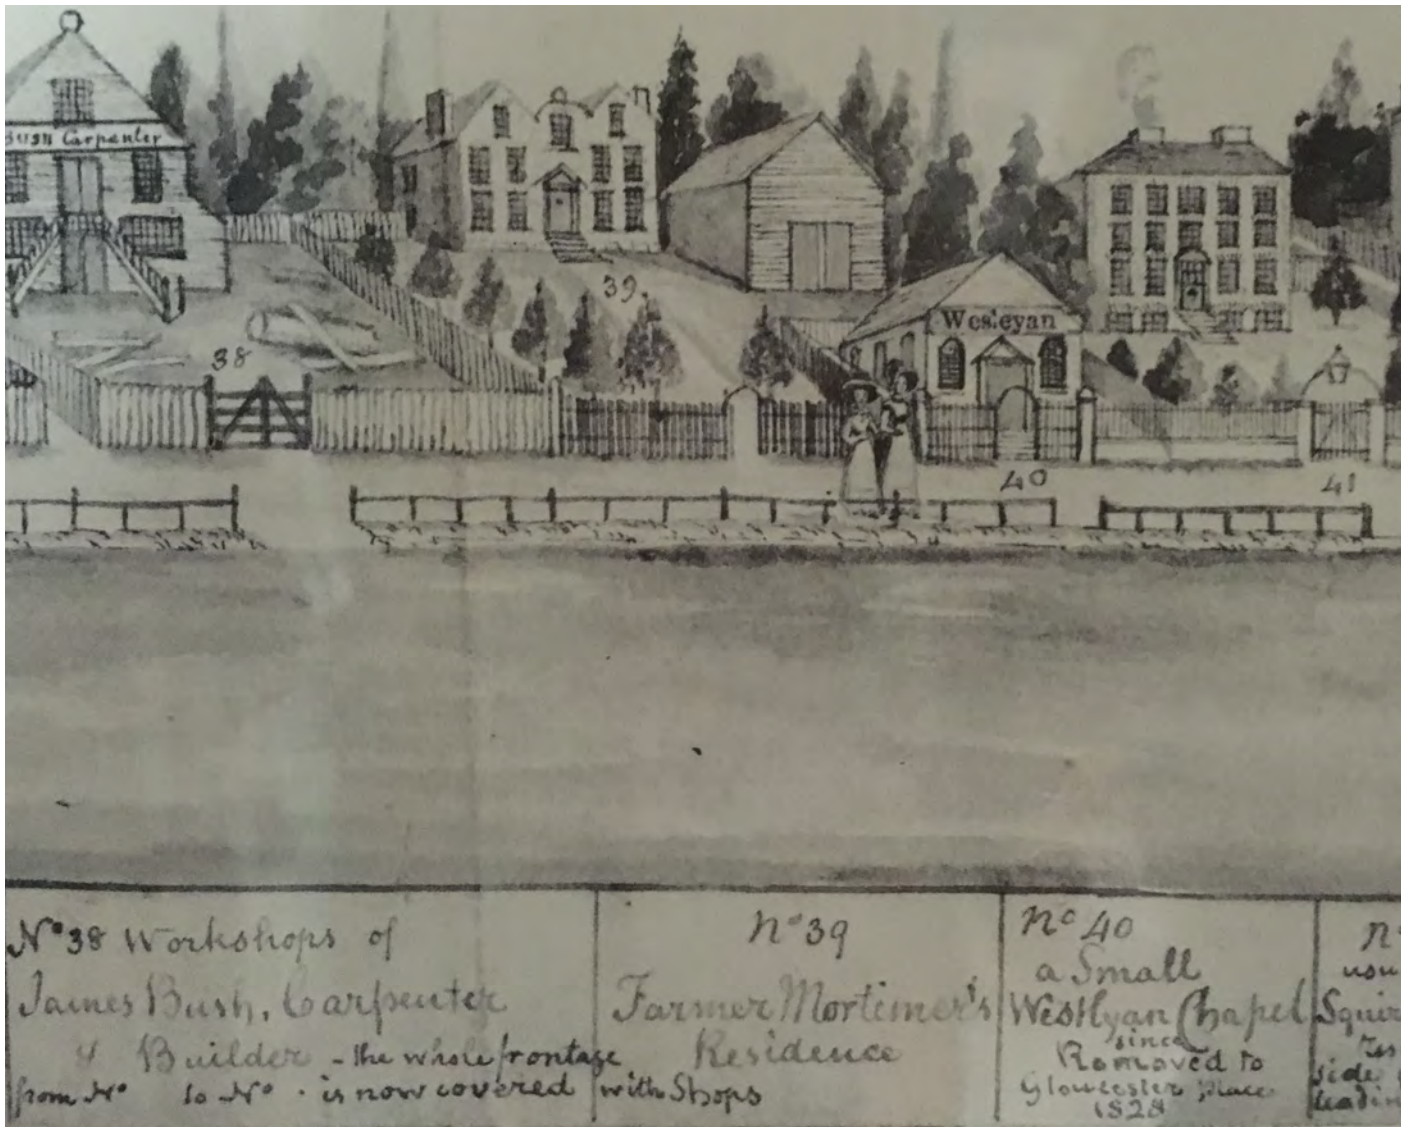 Bush Carpenter
39.
Wesleyan
38
40
41
No 38 Workshops of
James Bush, Carpenter
& Builder - the whole frontage
from No to No . is now covered with Shops
No 39
Farmer Mortimer's
Residence
No 40
a Small
Weslyan Chapel
since
Removed to
Gloucester place
1828
No
now
Squir
res
side
leadin